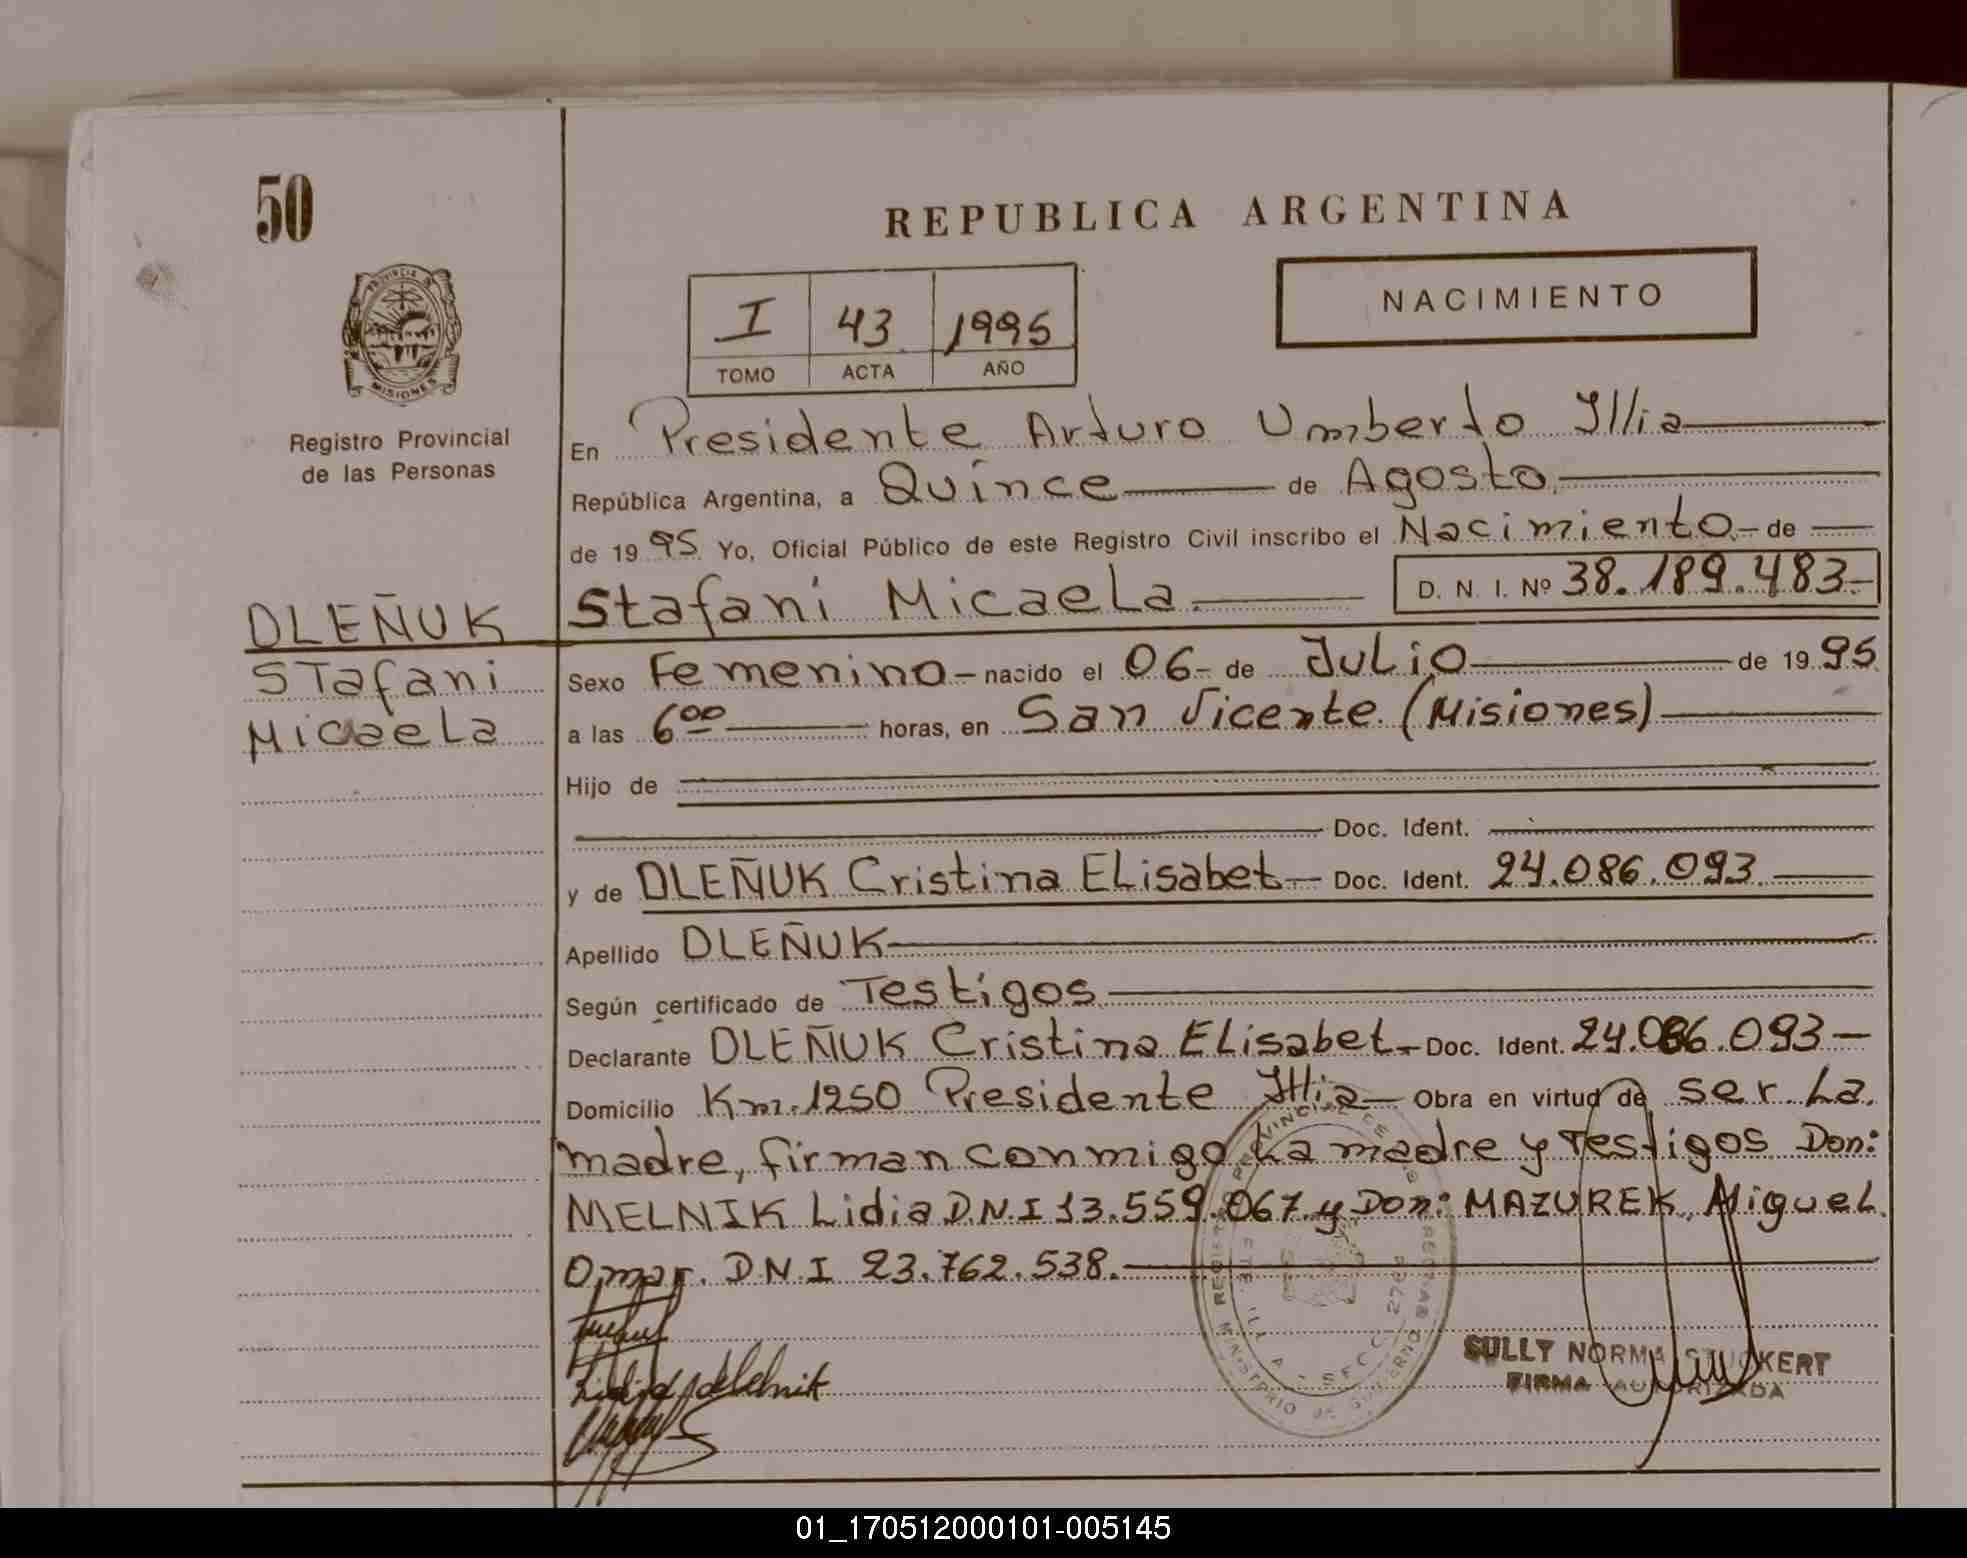 50
REPUBLICA ARGENTINA
NACIMIENTO
I 43 1995
TOMO ACTA AÑO
PROVINCIA DE
MISIONES
Registro Provincial
de las Personas
En Presidente Arturo Umberto Illia
República Argentina, a Quince de Agosto
de 1995 Yo, Oficial Público de este Registro Civil inscribo el Nacimiento de
Stafani Micaela. D. N. I. Nº 38.189.483
DLEÑUK
Stafani
Micaela
Sexo Femenino - nacido el 06 - de Julio de 1995
a las 6 00 horas, en San Vicente. (Misiones)
Hijo de
Doc. Ident.
y de DLEÑUK Cristina ELisabet - Doc. Ident. 24.086.093.
Apellido DLEÑUK
Según certificado de Testigos
Declarante DLEÑUK Cristina ELisabet - Doc. Ident. 24.086.093 -
Domicilio Km. 1250 Presidente Illia - Obra en virtud de ser La
madre, firman conmigo La madre y Testigos Don:
MELNIK Lidia D.N.I 13.559.067 y Don: MAZUREK, Miguel
Omar. D.N.I 23.762.538.
Lidia Melnik
SULLY NORMA STUCKERT
FIRMA AUTORIZADA
01_170512000101-005145